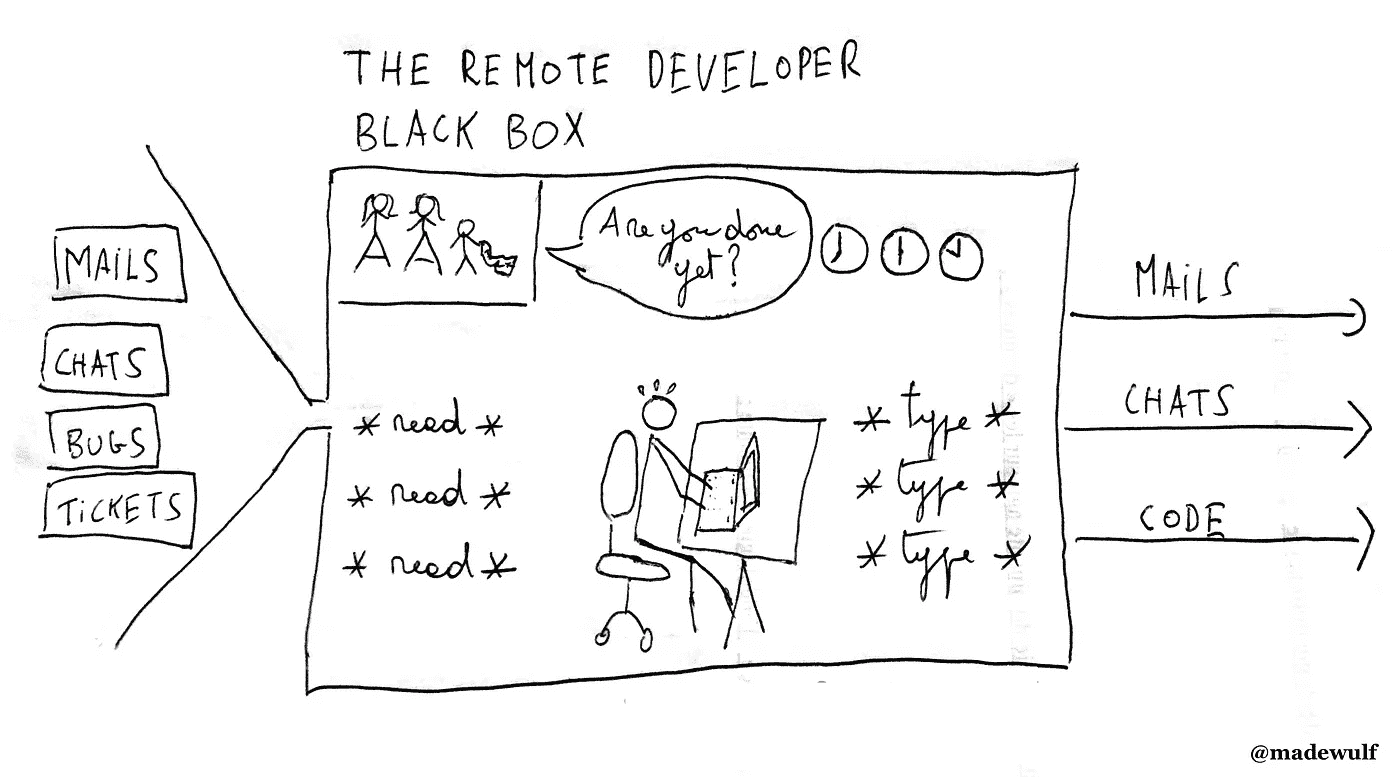 THE REMOTE DEVELOPER
BLACK BOX
MAiLS
CHATS
BUGS
TiCKETS
Are you done
yet?
* read *
* read *
* read *
* type *
* type *
* type *
MAiLS
CHATS
CODE
@madewulf